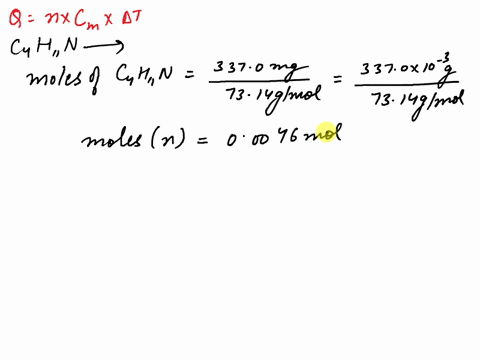 Q = n x Cm x ΔT
C4 H11 N ⟶
moles of C4 H11 N = 337.0 mg / 73.14 g/mol = 337.0 x 10^-3 g / 73.14 g/mol
moles (n) = 0.0046 mol